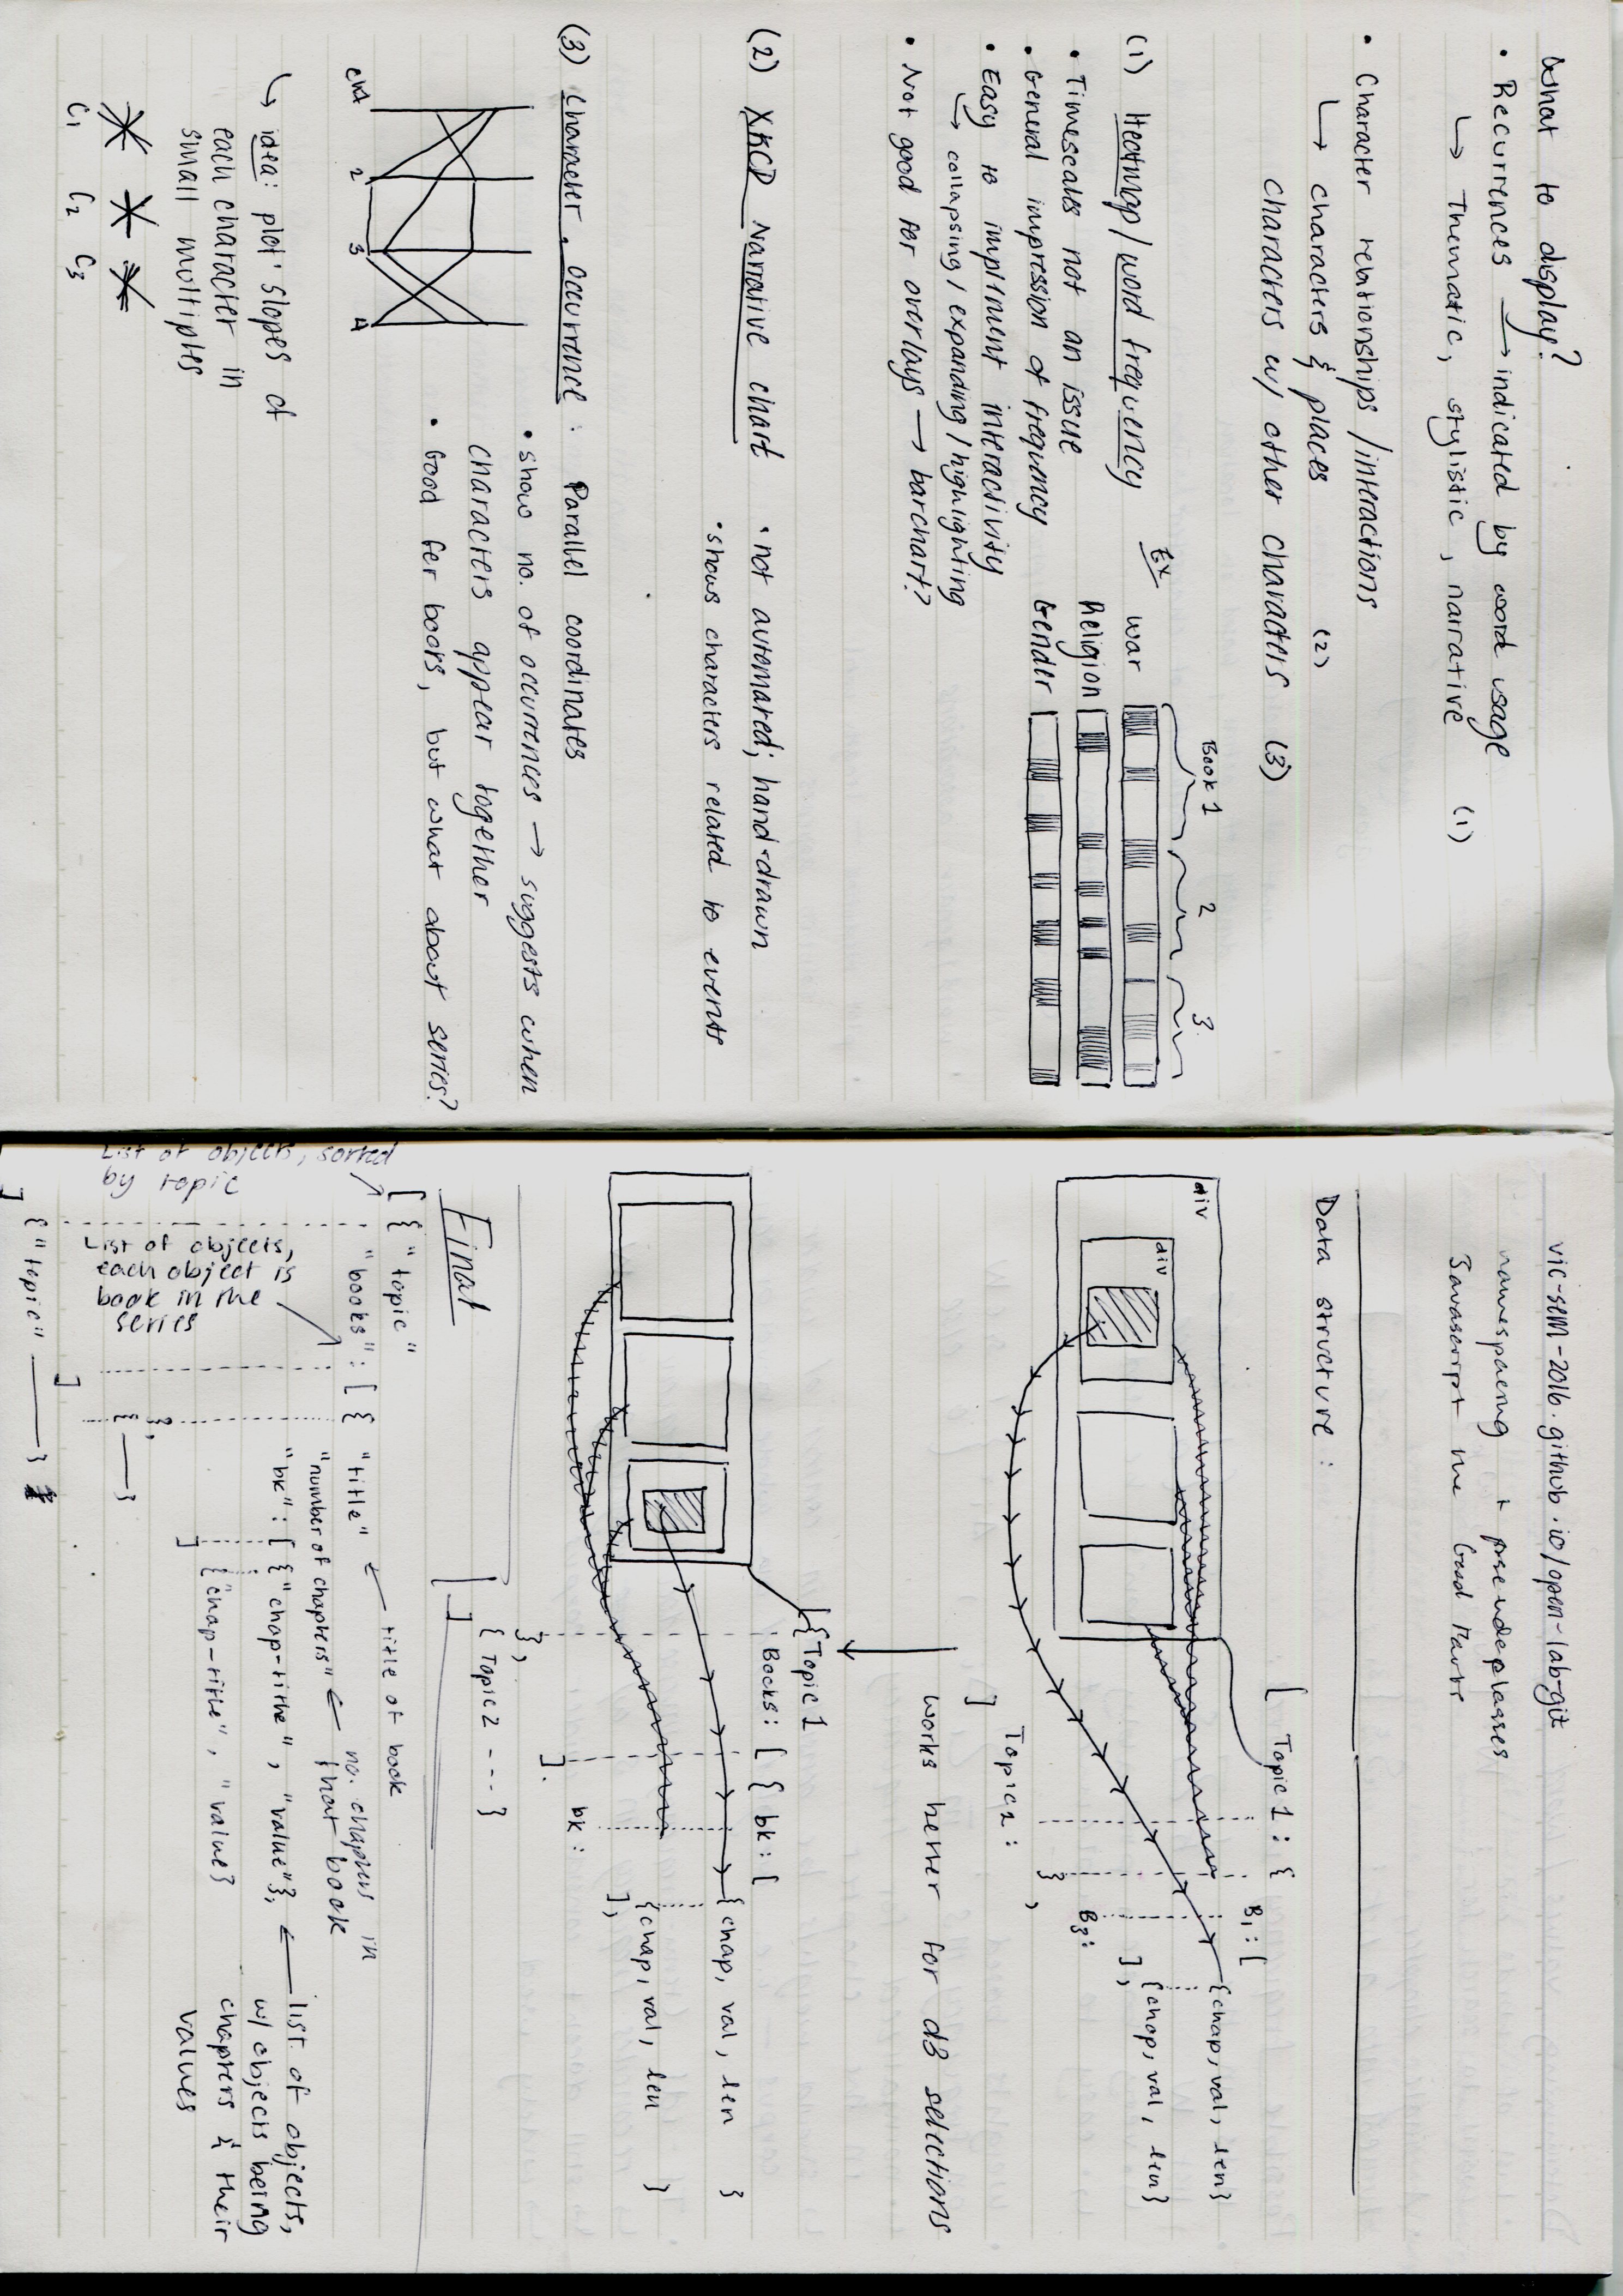 What to display?
• Recurrences → indicated by word usage
↳ Thematic, stylistic, narrative (1)
• Character relationships / interactions
↳ characters & places (2)
characters w/ other characters (3)
Book 1 2 3
(1) Heatmap / word frequency Ex
War
Religion
Gender
• Timescales not an issue
• General impression of frequency
• Easy to implement interactivity
↳ collapsing / expanding / highlighting
• Not good for overlays → barchart?
(2) XKCD Narrative chart
• not automated; hand-drawn
• shows characters related to events
(3) Character Occurrence : Parallel coordinates
• show no. of occurrences → suggests when
characters appear together
• Good for books, but what about series?
Ch1 2 3 4
↳ idea: plot slopes of
each character in
small multiples
C1 C2 C3
vic-sem-2016.github.io/open-lab-git
namespacing + pseudoclasses
Javascript the Good Parts
Data structure :
[ Topic 1 : {
B1 : [
{chap, val, len}
{chap, val, len}
],
B3:
},
Topic 2 :
]
div
div
works better for d3 selections
[{Topic 1
Books: [ { bk: [
{chap, val, len }
{chap, val, len }
],
bk :
].
},
{ Topic 2 --- }
]
Final
[ { "topic"
"books": [ { "title" ← title of book
"number of chapters" ← no. chapters in
that book
"bk": [ {"chap-title", "value"}, ← list of objects,
w/ objects being
chapters & their
values
{"chap-title", "value}
]
}
]
{"topic" —— }
]
List of objects, sorted
by topic
List of objects,
each object is
book in the
series